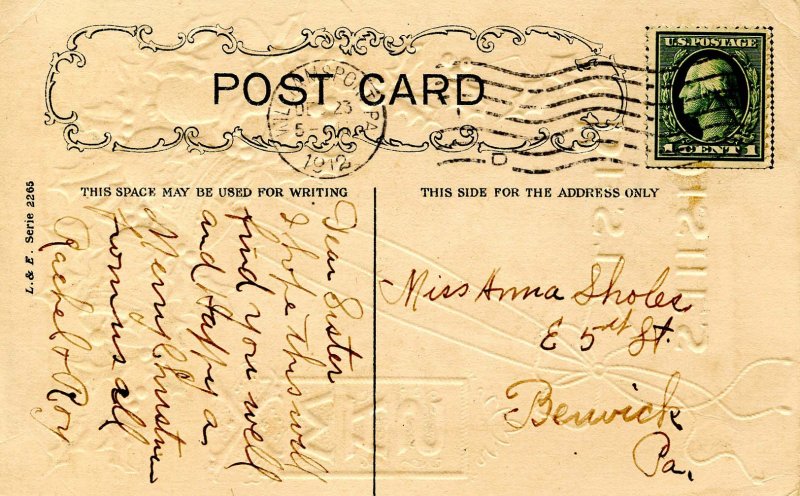 POST CARD
WILLIAMSPORT, PA
DEC 23
5-
1912
D
U.S. POSTAGE
1 CENT 1
THIS SPACE MAY BE USED FOR WRITING
THIS SIDE FOR THE ADDRESS ONLY
L. & E. Serie 2265
Dear Sister
I hope this will
find you well
and Happy a
Merry Christmas
from us all
Rachel & Roy
Miss Anna Sholes
E 5th St.
Berwick
Pa.